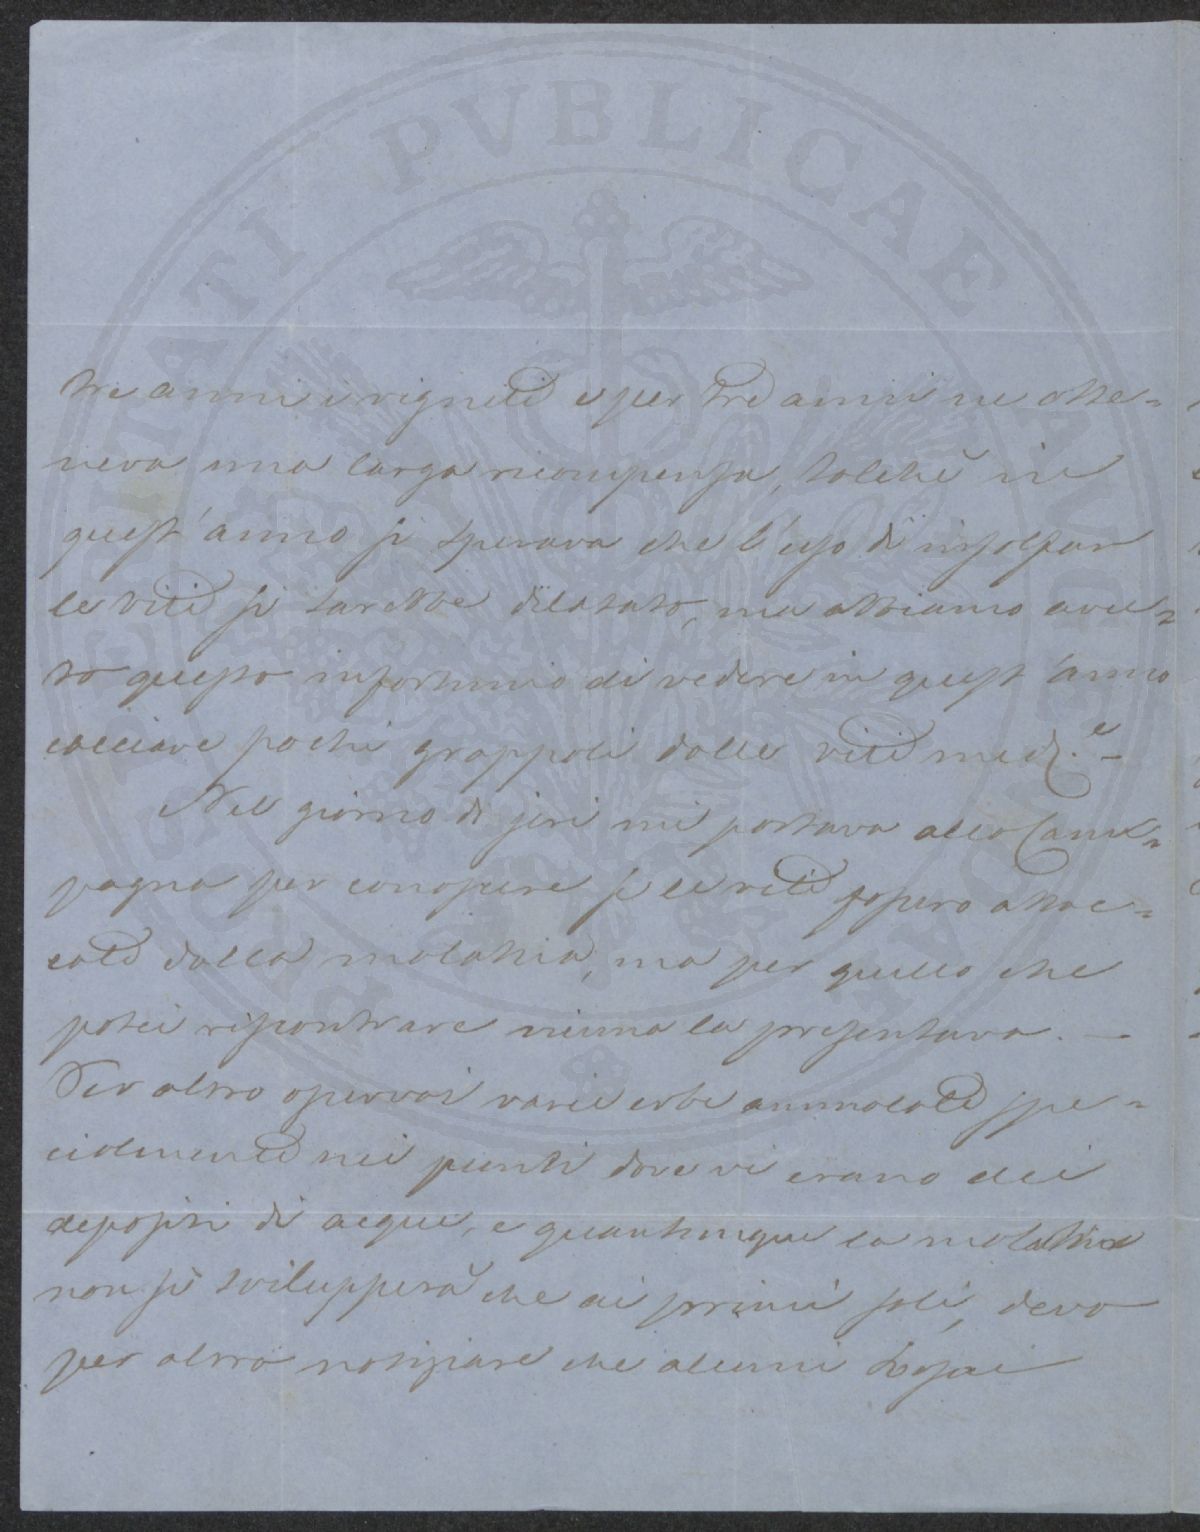 PROSPERITATI PVBLICAE AVGENDAE
tre anni i vigneti e per tre anni ne otte=
neva una larga ricompensa, talchè in
quest'anno si sperava che l'uso di insolfar
le viti si sarebbe dilatato, ma abbiamo avu=
to questo infortunio di vedere in quest'anno
cacciare pochi grappoli dalle viti med.e —
Nel giorno di jeri mi portava alla Cam=
pagna per conoscere se le viti fossero attac=
cate dalla malattia, ma per quello che
potei riscontrare niuna la presentava. —
Per altro osservai varie erbe ammalate spe=
cialmente nei punti dove vi erano dei
depositi di acque, e quantunque la malattia
non si svilupperà che ai primi soli, devo
per altro notiziare che alcuni Rosai